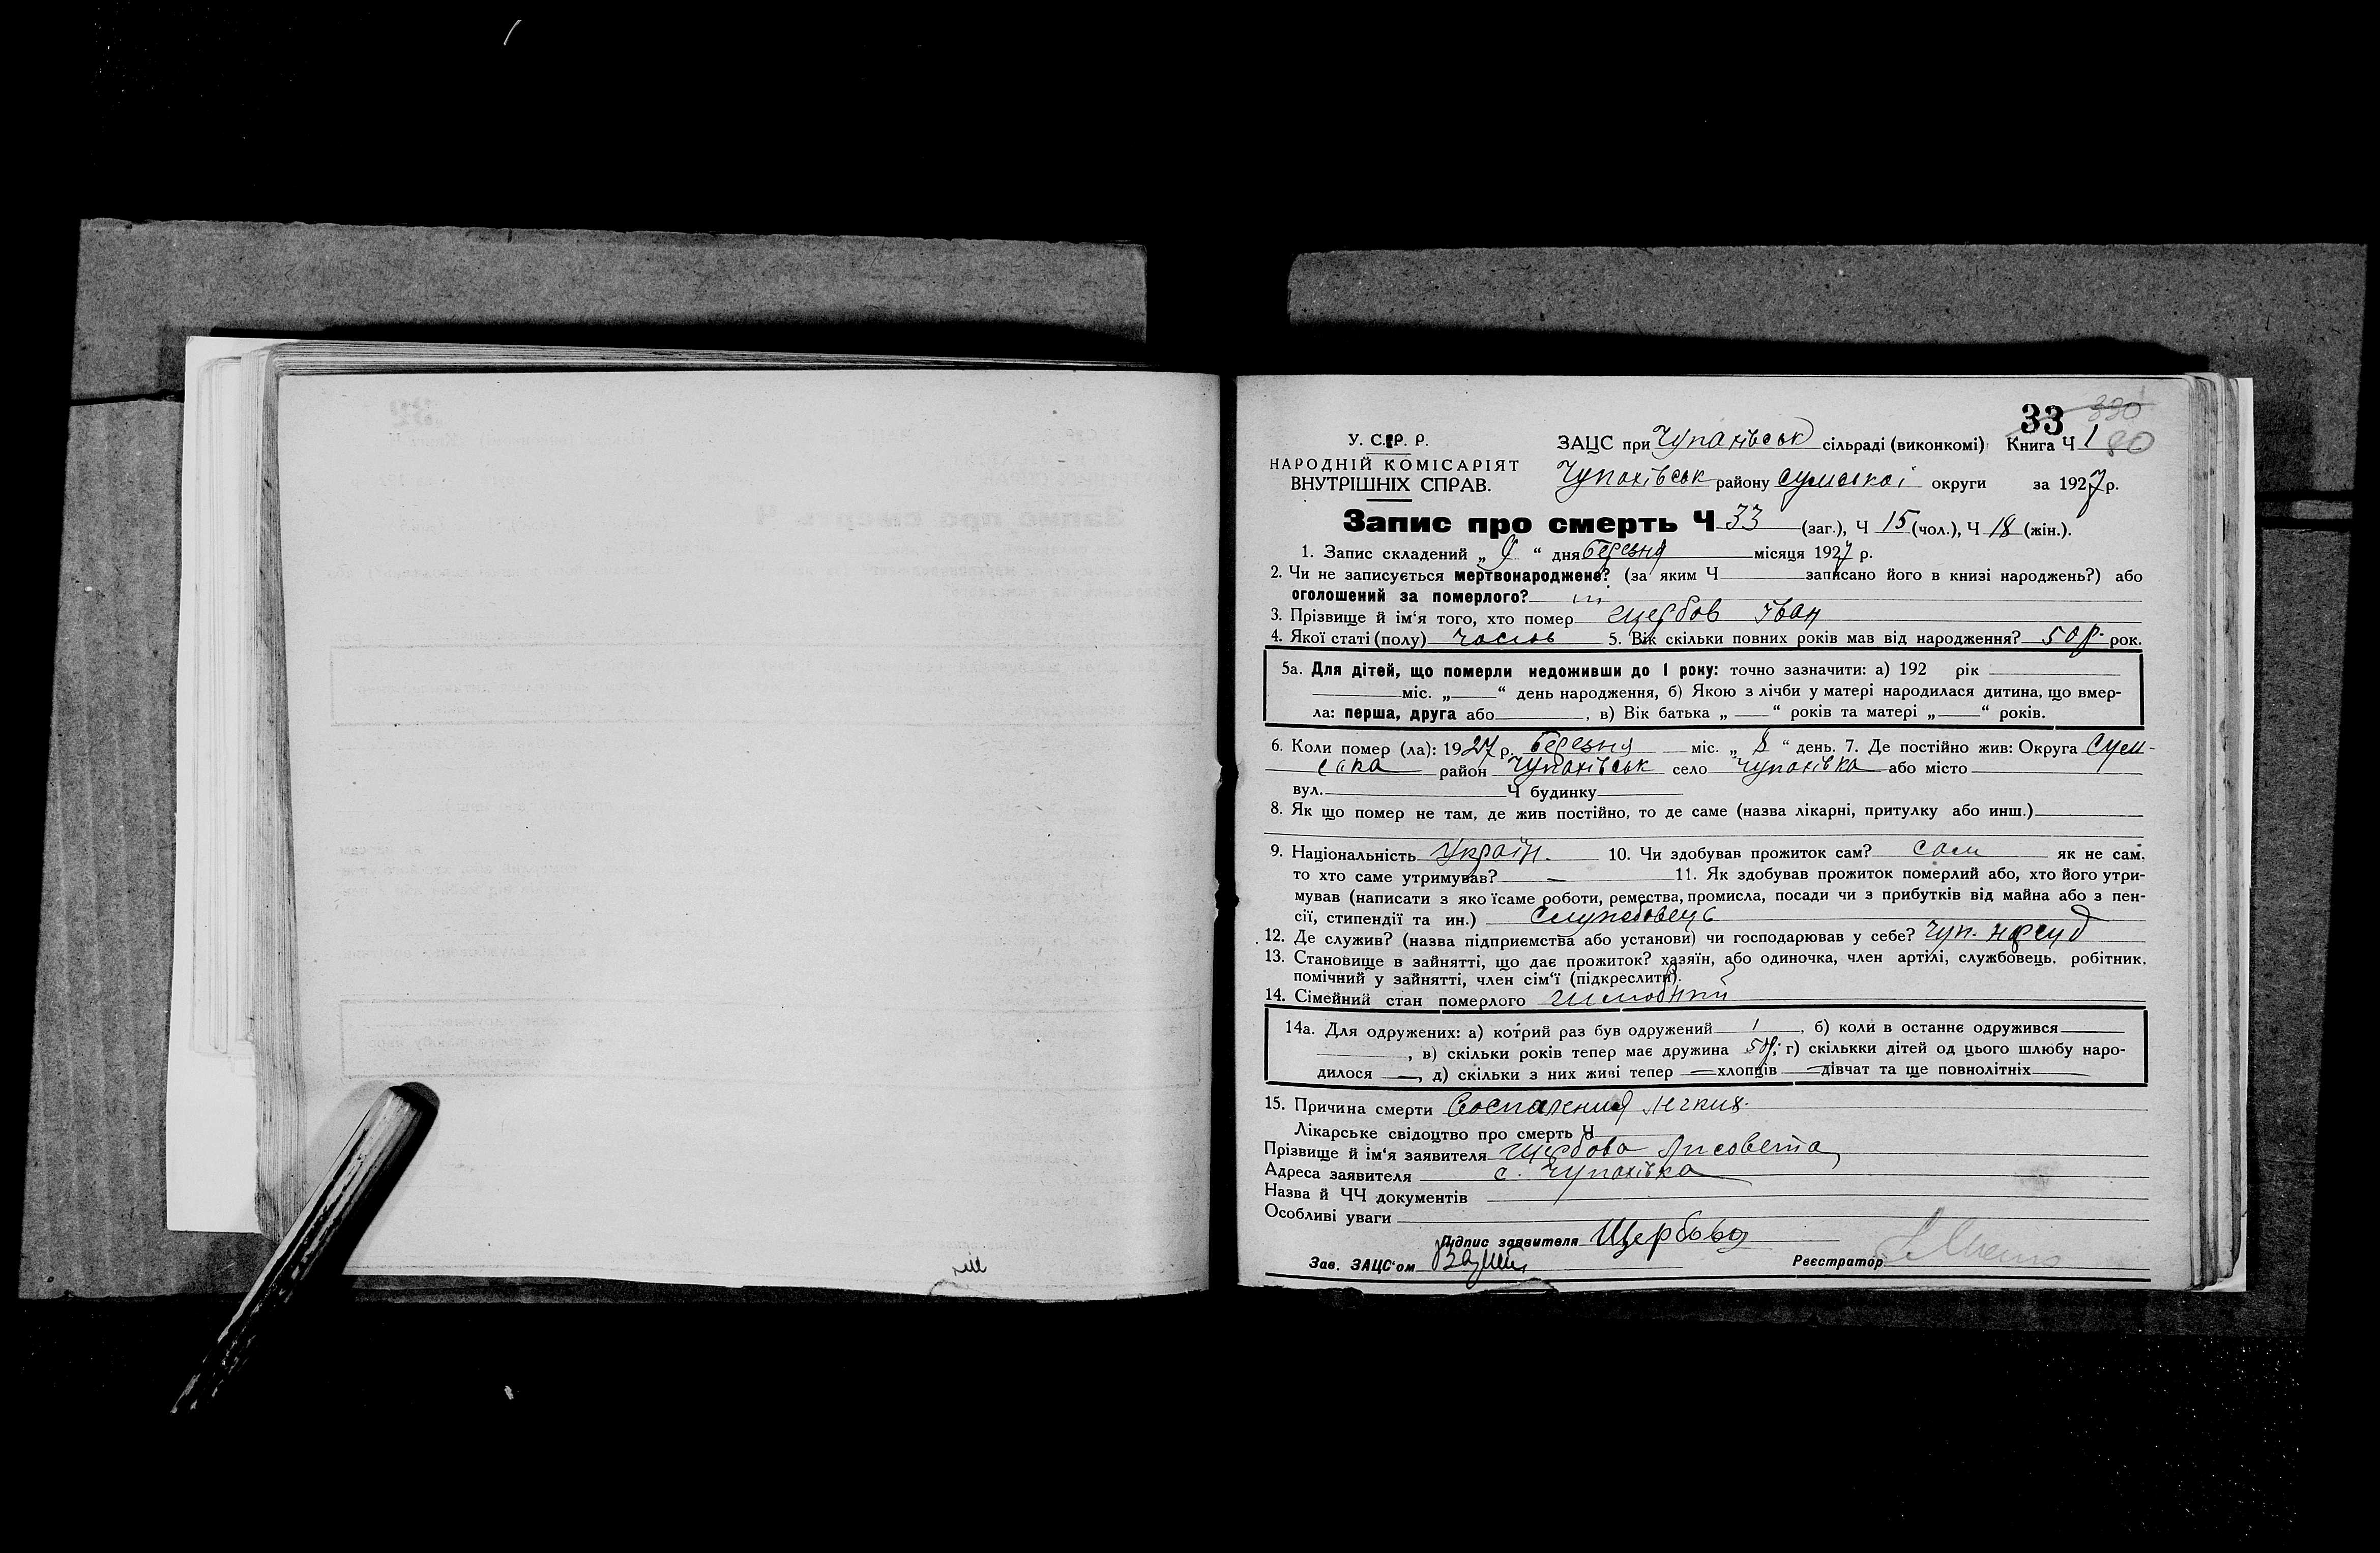 33
У. С. Р. Р.
ЗАЦС при Чупахівськ сільраді (виконкомі) Книга Ч 1
НАРОДНІЙ КОМІСАРІЯТ
ВНУТРІШНІХ СПРАВ.
Чупахівськ району Сумської округи за 1927 р.
Запис про смерть Ч 33 (заг.), Ч 15 (чол.), Ч 18 (жін.).
1. Запис складений „ 9 “ дня березня місяця 1927 р.
2. Чи не записується мертвонароджене? (за яким Ч записано його в книзі народжень?) або
оголошений за померлого? ні
3. Прізвище й ім‘я того, хто помер Щербов Іван
4. Якої статі (полу) чолов 5. Вік скільки повних років мав від народження? 50 р. рок.
5а. Для дітей, що померли недоживши до 1 року: точно зазначити: а) 192 рік
міс. „ “ день народження, б) Якою з лічби у матері народилася дитина, що вмер-
ла: перша, друга або , в) Вік батька „ — “ років та матері „ — “ років.
6. Коли помер (ла): 1927 р. березня міс. „ 8 “ день. 7. Де постійно жив: Округа Сум-
ська район Чупахівськ село Чупахівка або місто
вул. Ч будинку
8. Як що помер не там, де жив постійно, то де саме (назва лікарні, притулку або инш.)
9. Національність Україн. 10. Чи здобував прожиток сам? сам як не сам,
то хто саме утримував? — 11. Як здобував прожиток померлий або, хто його утри-
мував (написати з яко їсаме роботи, ремества, промисла, посади чи з прибутків від майна або з пен-
сії, стипендії та ин.) Службовець
12. Де служив? (назва підприємства або установи) чи господарював у себе? Чуп. нарсуд
13. Становище в зайнятті, що дає прожиток? хазяїн, або одиночка, член артілі, службовець, робітник,
помічний у зайнятті, член сім‘ї (підкреслити).
14. Сімейний стан померлого шлюбний
14а. Для одружених: а) котрий раз був одружений 1 , б) коли в останнє одружився
, в) скільки років тепер має дружина 50 р; г) скількки дітей од цього шлюбу наро-
дилося —, д) скільки з них живі тепер — хлопців — дівчат та ще повнолітніх
15. Причина смерти Воспаления легких.
Лікарське свідоцтво про смерть Ч
Прізвище й ім‘я заявителя Щербова Лисовета
Адреса заявителя с. Чупахівка
Назва й ЧЧ документів
Особливі уваги
Підпис заявителя Щербова
Зав. ЗАЦС‘ом
Реєстратор